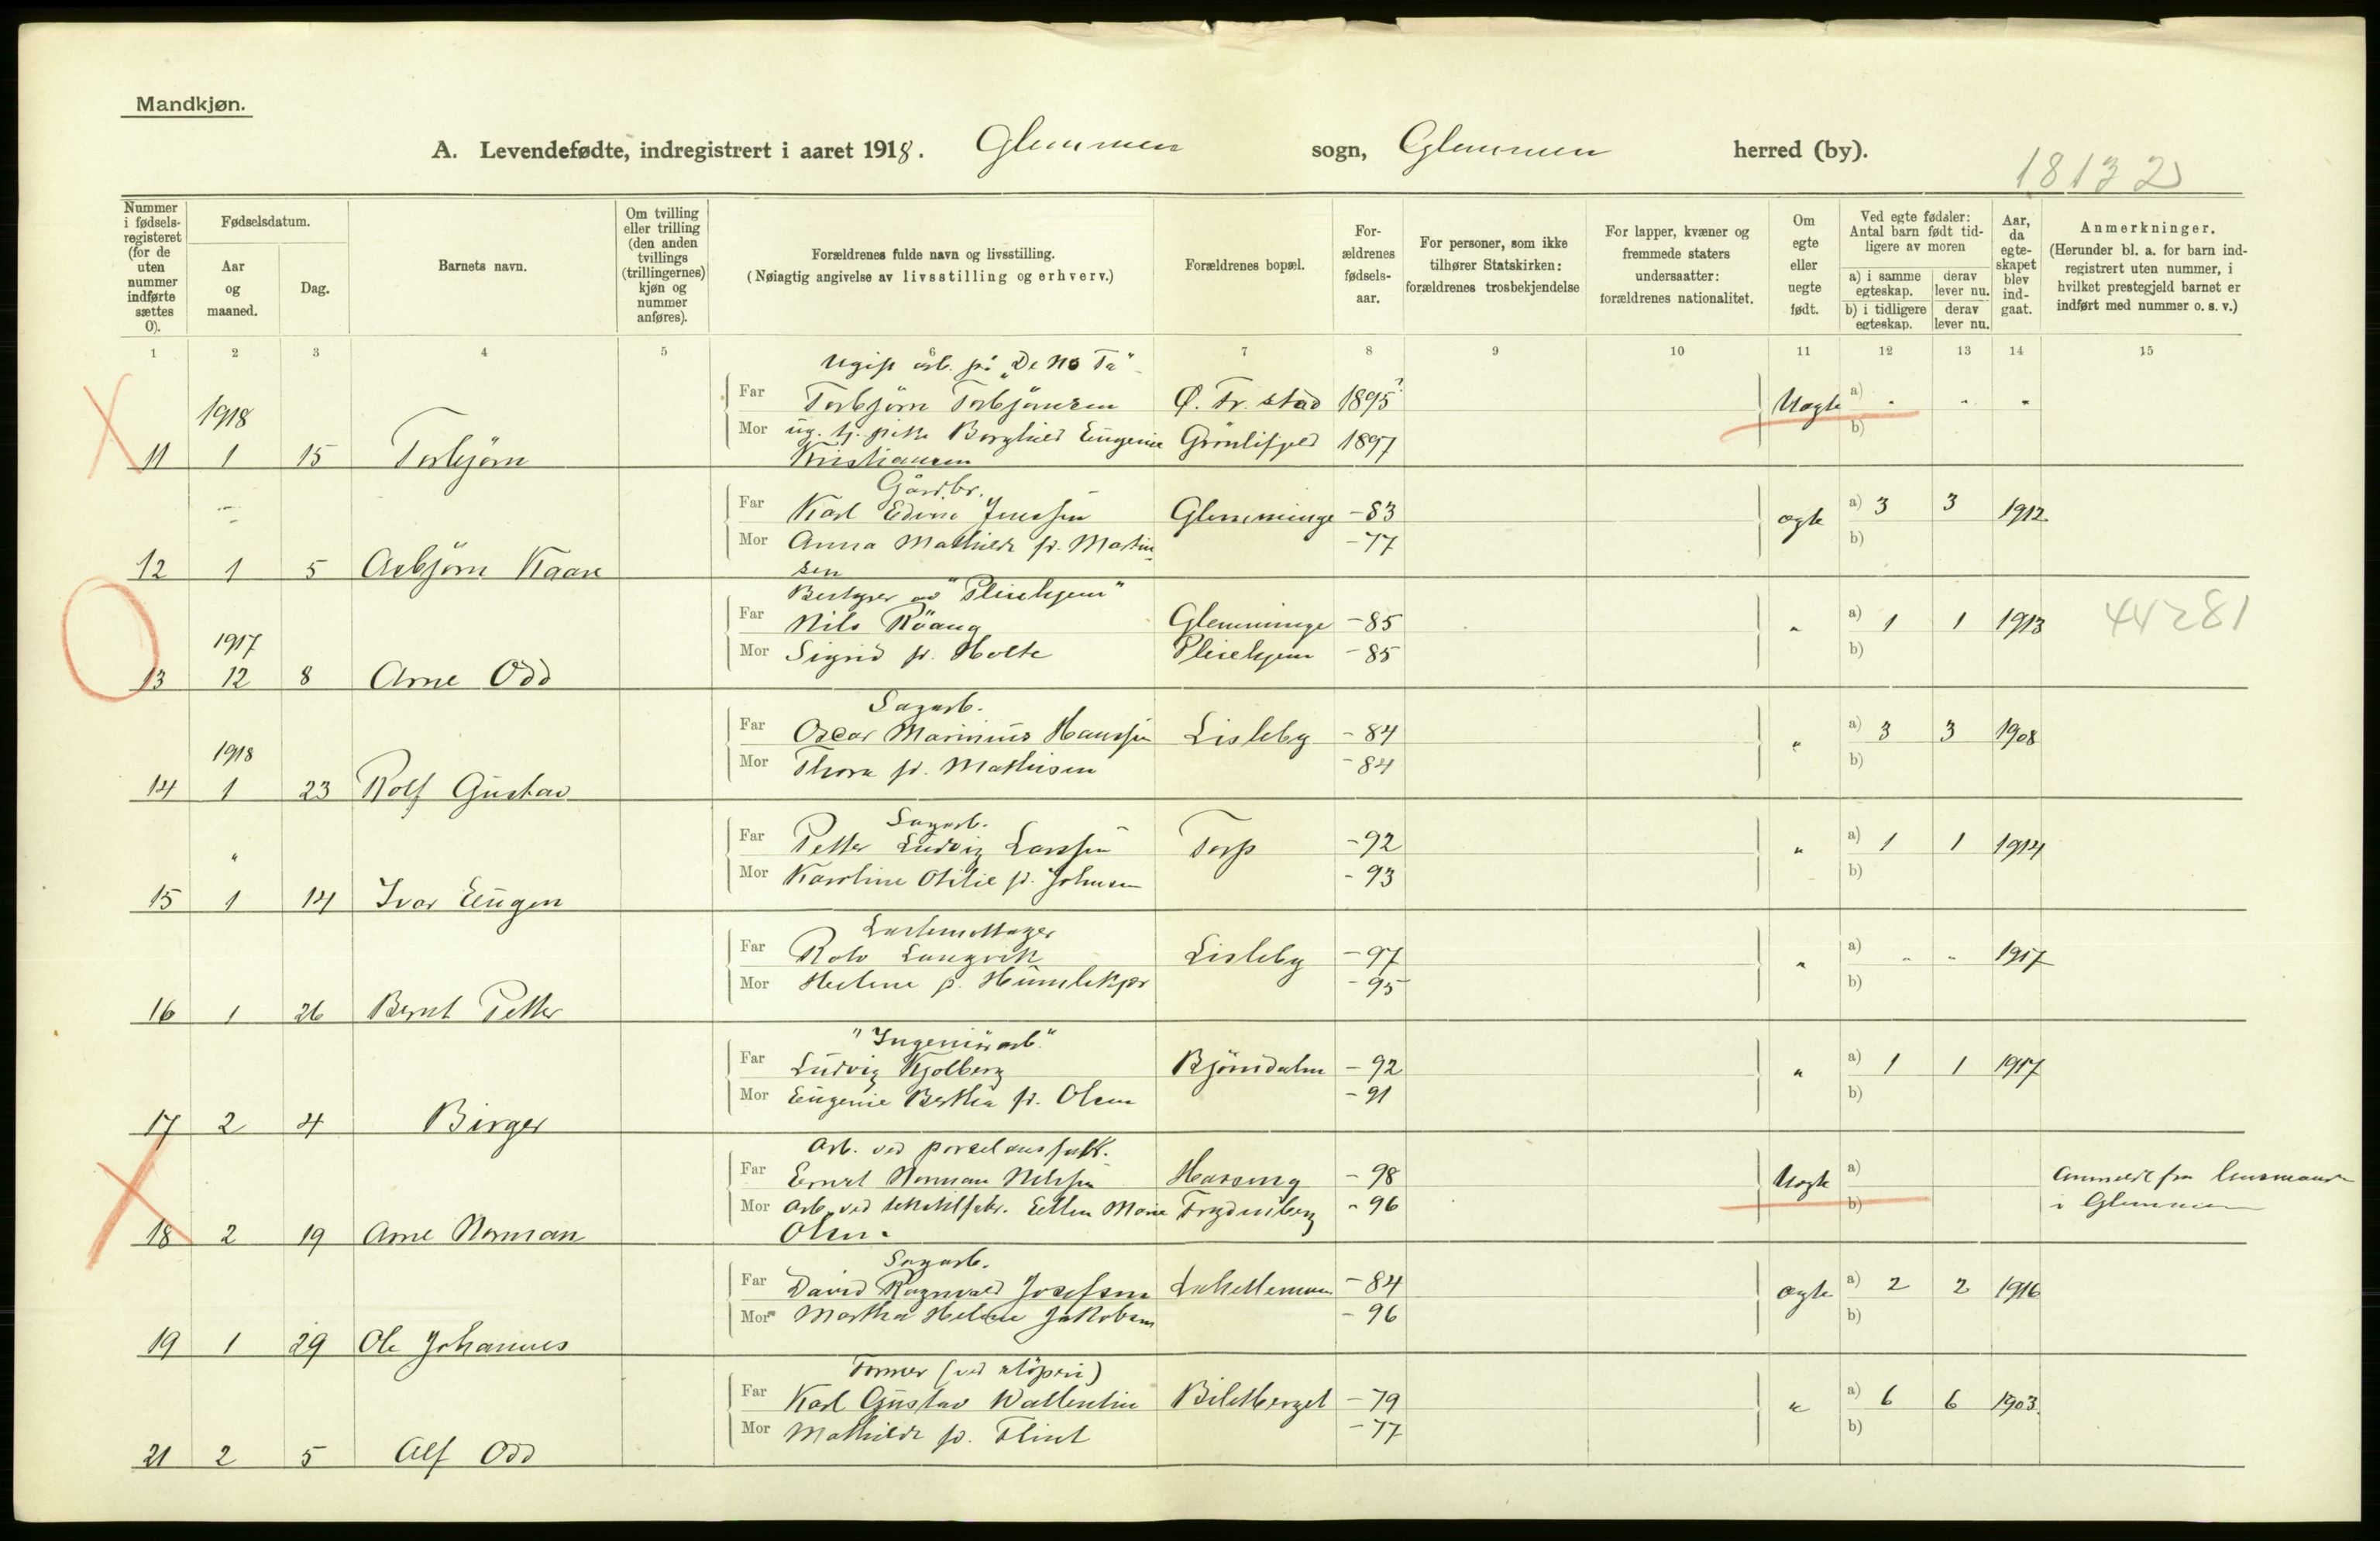 Mandkjøn.
A. Levendefødte, indregistrert i aaret 1918. Glemmen sogn, Glemmen herred (by).
18132
Nummer i fødselsregisteret (for de uten nummer indførte sættes 0).
Fødselsdatum.
Aar og maaned.
Dag.
Barnets navn.
Om tvilling eller trilling (den anden tvillings (trillingernes) kjøn og nummer anføres).
Forældrenes fulde navn og livsstilling.
(Nøiagtig angivelse av livsstilling og erhverv.)
Forældrenes bopæl.
Forældrenes fødselsaar.
For personer, som ikke tilhører Statskirken: forældrenes trosbekjendelse
For lapper, kvæner og fremmede staters undersaatter: forældrenes nationalitet.
Om egte eller uegte født.
Ved egte fødsler: Antal barn født tidligere av moren
a) i samme egteskap. derav lever nu.
b) i tidligere egteskap. derav lever nu.
Aar, da egteskapet blev indgaat.
Anmerkninger.
(Herunder bl. a. for barn indregistrert uten nummer, i hvilket prestegjeld barnet er indført med nummer o. s. v.)
1 2 3 4 5 6 7 8 9 10 11 12 13 14 15
Ugift arb. på „De No Fa"
Far Torbjörn Torbjörnsen Ø. Fr. stad 1895? Uegte a) " " "
1918
Mor ug. tj. pike Borghild Eugenie Grönlifjeld 1897 b)
11 1 15 Torbjörn Kristiansen
Gårdbr.
Far Karl Edvin Jenssen Glemminge -83 egte a) 3 3 1912
Mor Anna Mathilde f. Martin -77 b)
12 1 5 Asbjörn Kaare sen
Bestyrer av "Pleiehjem"
Far Nils Röang Glemminge -85 " a) 1 1 1913 44281
1917
Mor Sigrid f. Holte Pleiehjem -85 b)
13 12 8 Arne Odd
Sagarb.
Far Oscar Marinius Hanssen Lisleby -84 " a) 3 3 1908
1918
Mor Thora f. Mathisen -84 b)
14 1 23 Rolf Gustav
Sagarb.
Far Petter Ludvig Larssen Torp -92 " a) 1 1 1914
"
Mor Karoline Otilie f. Johnsen -93 b)
15 1 14 Ivar Eugen
Lastemottager
Far Rolv Langvik Lisleby -97 " a) " " 1917
Mor Helene f. -95 b)
16 1 26 Bernt Petter
"Ingeniörarb."
Far Ludvig Kjolberg Björndalen -92 " a) 1 1 1917
Mor Eugenie Bertha f. Olsen -91 b)
17 2 4 Birger
Arb. ved porselensfabk.
Far Ernst Norman Nilssen -98 Uegte a) Anmeldt fra lensmand
Mor Arb. ved Ellen Marie Frydenberg -96 b) i Glemmen
18 2 19 Arne Norman Olsen.
Sagarb.
Far David Ragnvald Josefsen -84 egte a) 2 2 1916
Mor Martha Helene Jakobsen -96 b)
19 1 29 Ole Johannes
Former (ved stöperi)
Far Karl Gustav Wallentin Biletberget -79 " a) 6 6 1903.
Mor Mathilde f. Flint -77 b)
21 2 5 Alf Odd